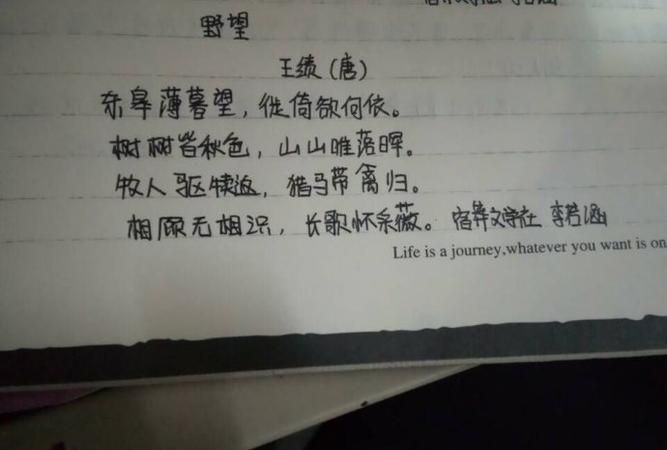 野望
王绩(唐)
东皋薄暮望,徙倚欲何依。
树树皆秋色,山山唯落晖。
牧人驱犊返,猎马带禽归。
相顾无相识,长歌怀采薇。 文学社 李若涵
Life is a journey,whatever you want is on